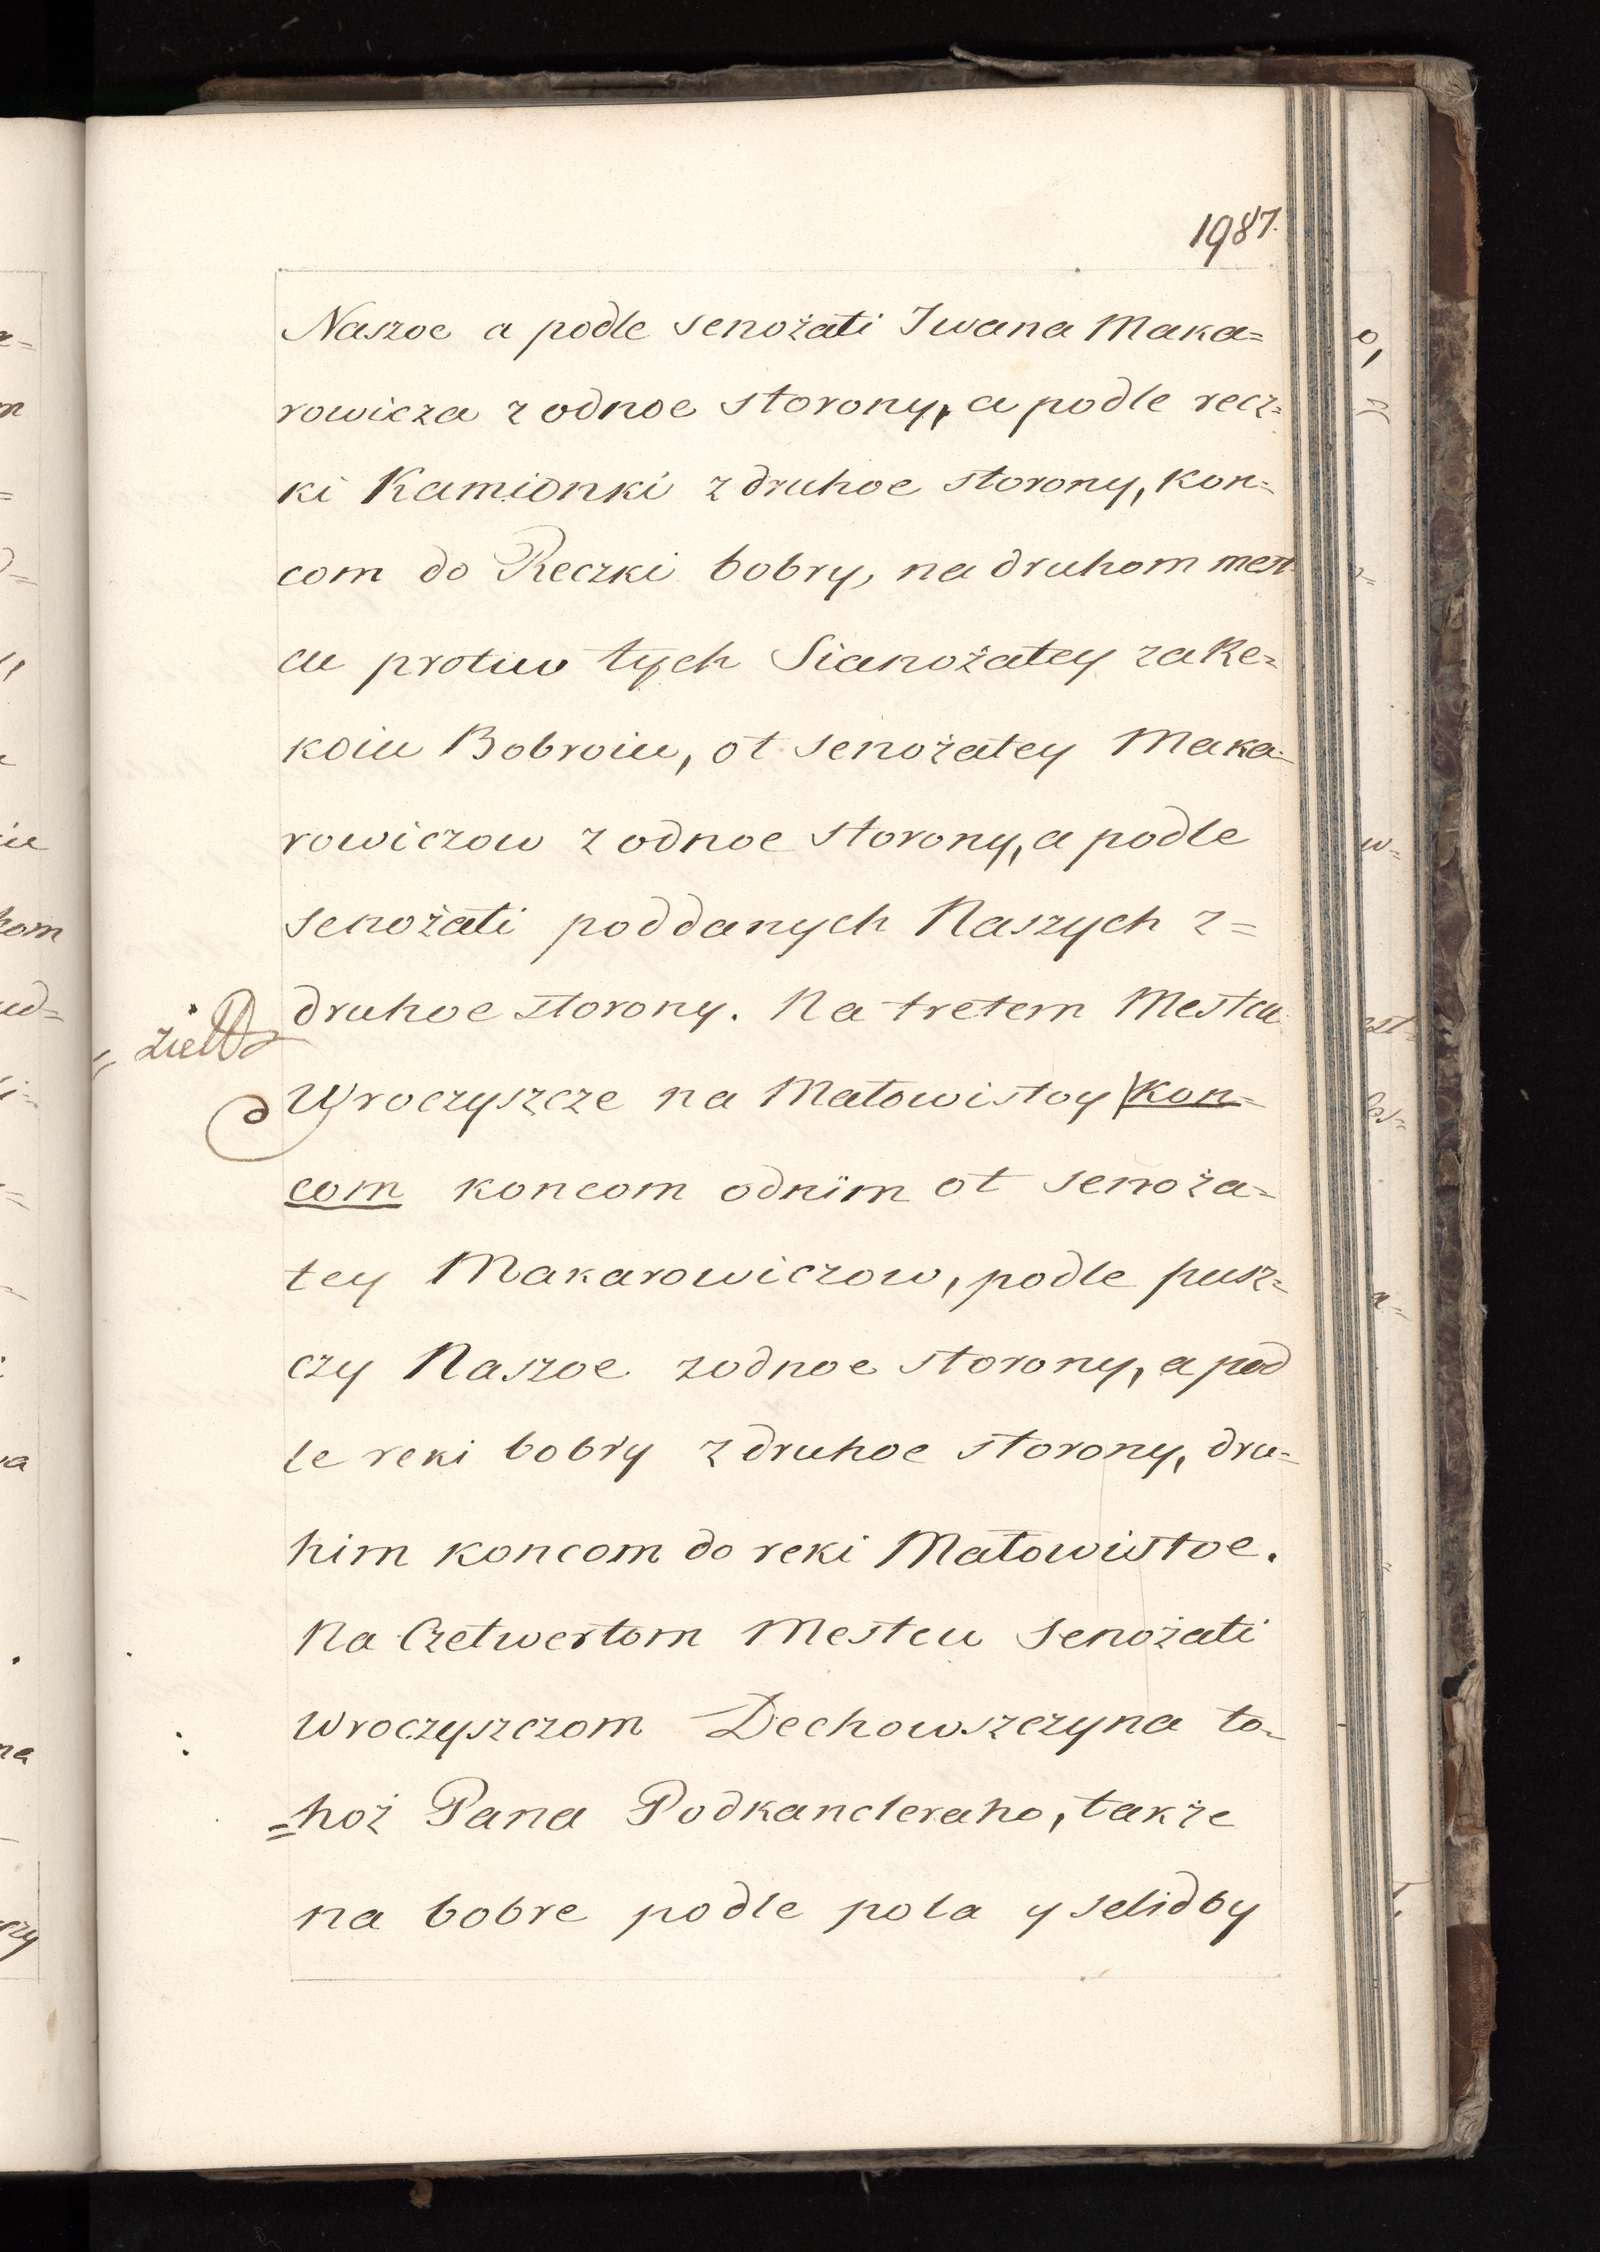 1987.
Naszoe a podle senożati Iwana Maka=
rowicza z odnoe storony, a podle recz=
ki Kamionki z druhoe storony, kon=
com do Reczki bobry, na druhom mest
cu protiw tych Sianożatey za Re=
koiu Bobroiu, ot senożatey Maka=
rowiczow z odnoe storony, a podle
senożati poddanych Naszych z=
druhoe storony. Na tretem Mestcu
Wroczyszcze na Małowistoy kon=
com koncom odnim ot senoża=
tey Makarowiczow, podle pusz=
czy Naszoe zodnoe storony, a pod
le reki bobry z druhoe storony, dru=
him koncom do reki Małowistoe.
Na Czetwertom Mestcu senożati
wroczyszczom Dechowszczyna to=
=hoż Pana Podkancleraho, także
na bobre podle pola y selidby